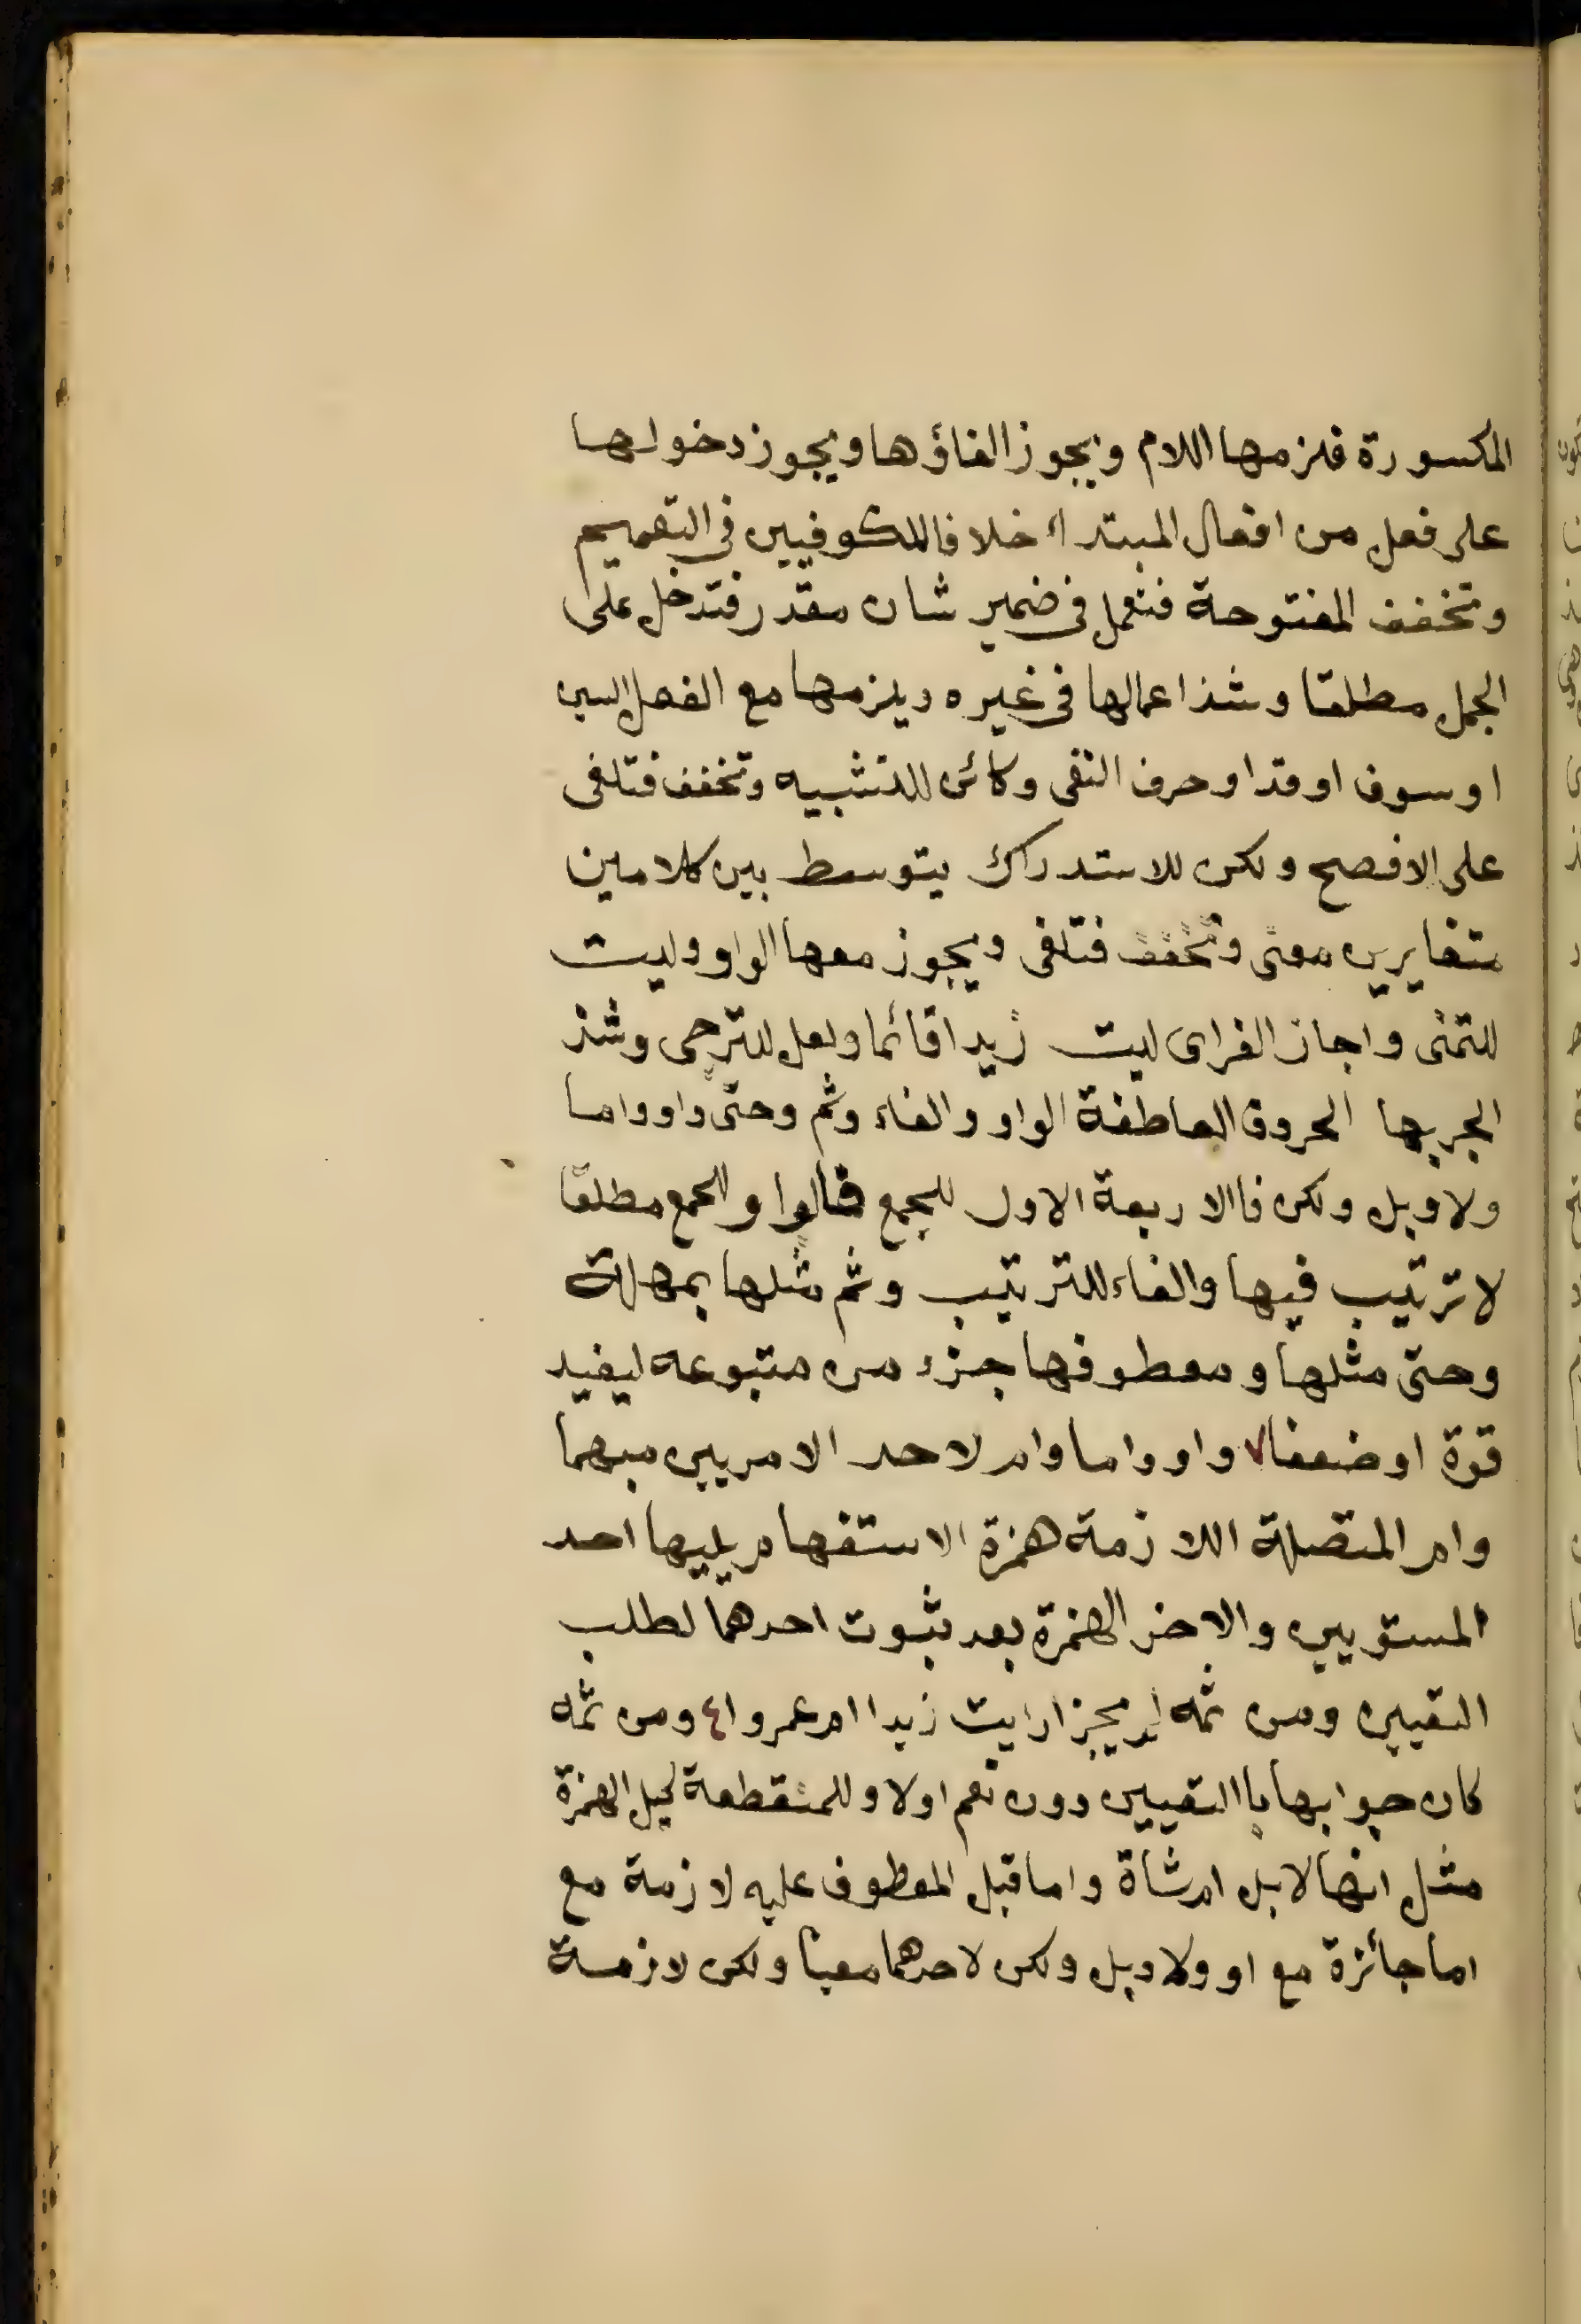 المكسورة فلزمها اللام ويجوز الغاؤها ويجوز دخولها
على فعل من افعال المبتداء خلافا للكوفيين فى التعميم
وتخفف المفتوحة فتعمل فى ضمير شان مقدر فتدخل على
الجمل مطلقا وشذ اعمالها فى غيره ويلزمها مع الفعل السين
اوسوف اوقد اوحرف النفى وكائن للتشبيه وتخفف فتلغى
على الافصح ولكن للاستدراك يتوسط بين كلامين
متغايرين معنى وتخفف فتلغى ويجوز معها الواو وليت
للتمنى واجاز الفراى ليت زيدا قائما ولعل للترجى وشذ
الجر بها الحروف العاطفة الواو والفاء وثم وحتى واو واما
ولا وبل ولكن فاالاربعة الاول للجمع فالوا وللجمع مطلقا
لا ترتيب فيها والفاء للترتيب وثم مثلها بمهلة
وحتى مثلها ومعطوفها جزء من متبوعه ليفيد
قوة اوضعفا ٧ واو واما وام لاحد الامرين مبهما
وام المتصلة اللازمة همزة الاستفهام يليها احد
المستويين والاخر الهمزة بعد ثبوت احدهما لطلب
التعيين ومن ثمه لم يجز ارايت زيدا ام عمروا ٤ ومن ثمه
كان جوابها باالتعيين دون نعم اولا وللمنقطعة كبل الهمزة
مثل انها لابل ام شاة واما قبل المعطوف عليه لازمة مع
اما جائزة مع او ولا وبل ولكن لاحدهما معينا ولكن لازمة